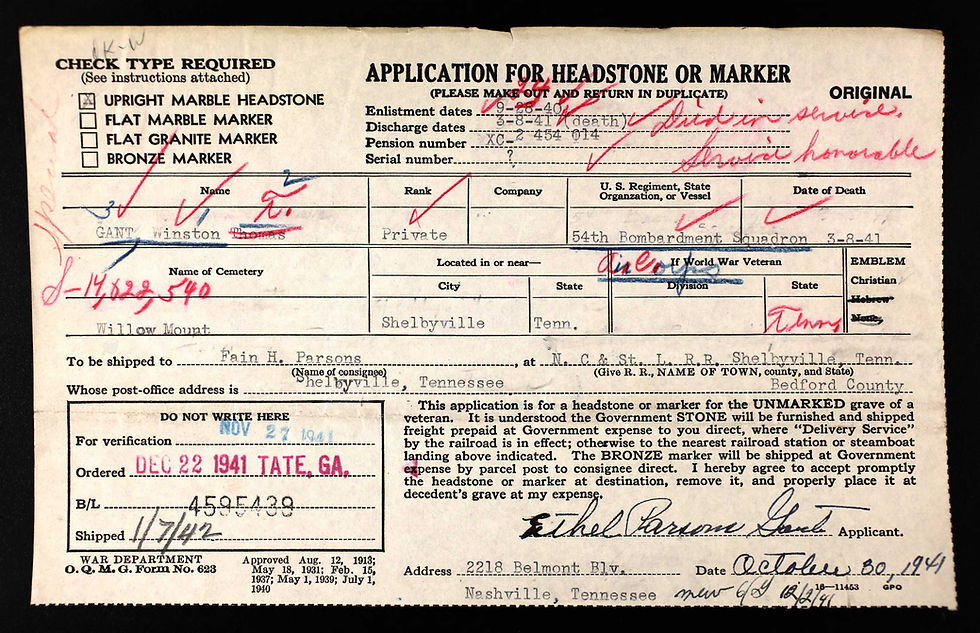 CHECK TYPE REQUIRED
(See instructions attached)
X UPRIGHT MARBLE HEADSTONE
FLAT MARBLE MARKER
FLAT GRANITE MARKER
BRONZE MARKER
APPLICATION FOR HEADSTONE OR MARKER
(PLEASE MAKE OUT AND RETURN IN DUPLICATE)
ORIGINAL
Enlistment dates 9-28-40
Discharge dates 3-8-41 (death)
Pension number XC-2 454 014
Serial number ?
Died in service.
Service honorable
Name
Rank
Company
U. S. Regiment, State Organization, or Vessel
Date of Death
3 1 2 T.
GANT, Winston Thomas
Private
54th Bombardment Squadron
3-8-41
S-14,022,540
Name of Cemetery
Located in or near—
City
State
Air Corps
If World War Veteran
Division
State
EMBLEM
Christian
Hebrew
None
Willow Mount
Shelbyville
Tenn.
Tenn
To be shipped to Fain H. Parsons, at N. C & St. L. R.R. Shelbyville, Tenn.
(Name of consignee)
(Give R. R., NAME OF TOWN, county, and State)
Whose post-office address is Shelbyville, Tennessee
Bedford County
DO NOT WRITE HERE
For verification NOV 27 1941
Ordered DEC 22 1941 TATE, GA.
B/L 4595439
Shipped 1/7/42
WAR DEPARTMENT
O. Q. M. G. Form No. 623
Approved Aug. 12, 1913;
May 18, 1931; Feb. 15,
1937; May 1, 1939; July 1,
1940
This application is for a headstone or marker for the UNMARKED grave of a
veteran. It is understood the Government STONE will be furnished and shipped
freight prepaid at Government expense to you direct, where "Delivery Service"
by the railroad is in effect; otherwise to the nearest railroad station or steamboat
landing above indicated. The BRONZE marker will be shipped at Government
expense by parcel post to consignee direct. I hereby agree to accept promptly
the headstone or marker at destination, remove it, and properly place it at
decedent's grave at my expense.
Ethel Parsons Gant Applicant.
Address 2218 Belmont Blv. Date October 30, 1941
Nashville, Tennessee
12/2/41
16—11453 GPO